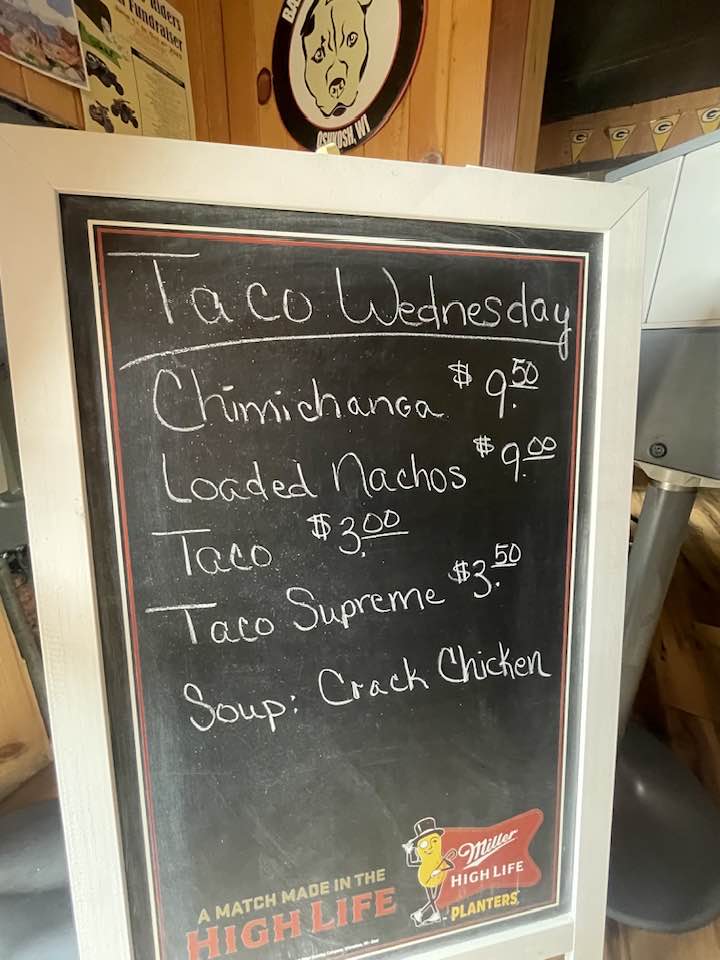 Riders
Fundraiser
BA
OSHKOSH, WI
G G G G
Taco Wednesday
Chimichanga $9.50
Loaded Nachos $9.00
Taco $3.00
Taco Supreme $3.50
Soup: Crack Chicken
A MATCH MADE IN THE
HIGH LIFE
Miller
HIGH LIFE
PLANTERS